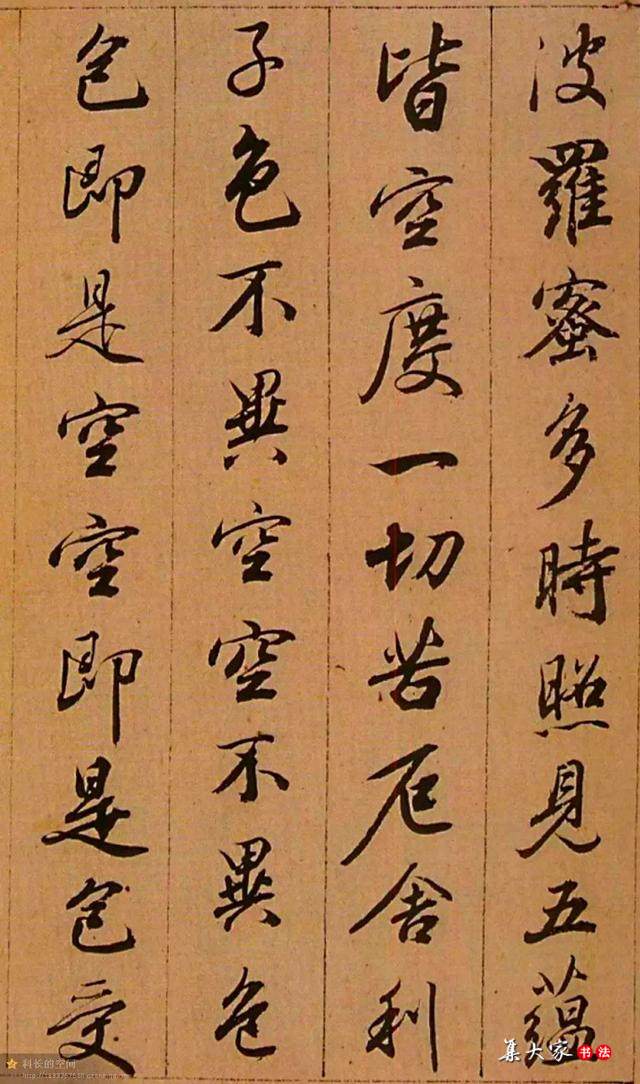 波羅蜜多時照見五蘊
皆空度一切苦厄舍利
子色不異空空不異色
色即是空空即是色受
集大家书法
科长的空间